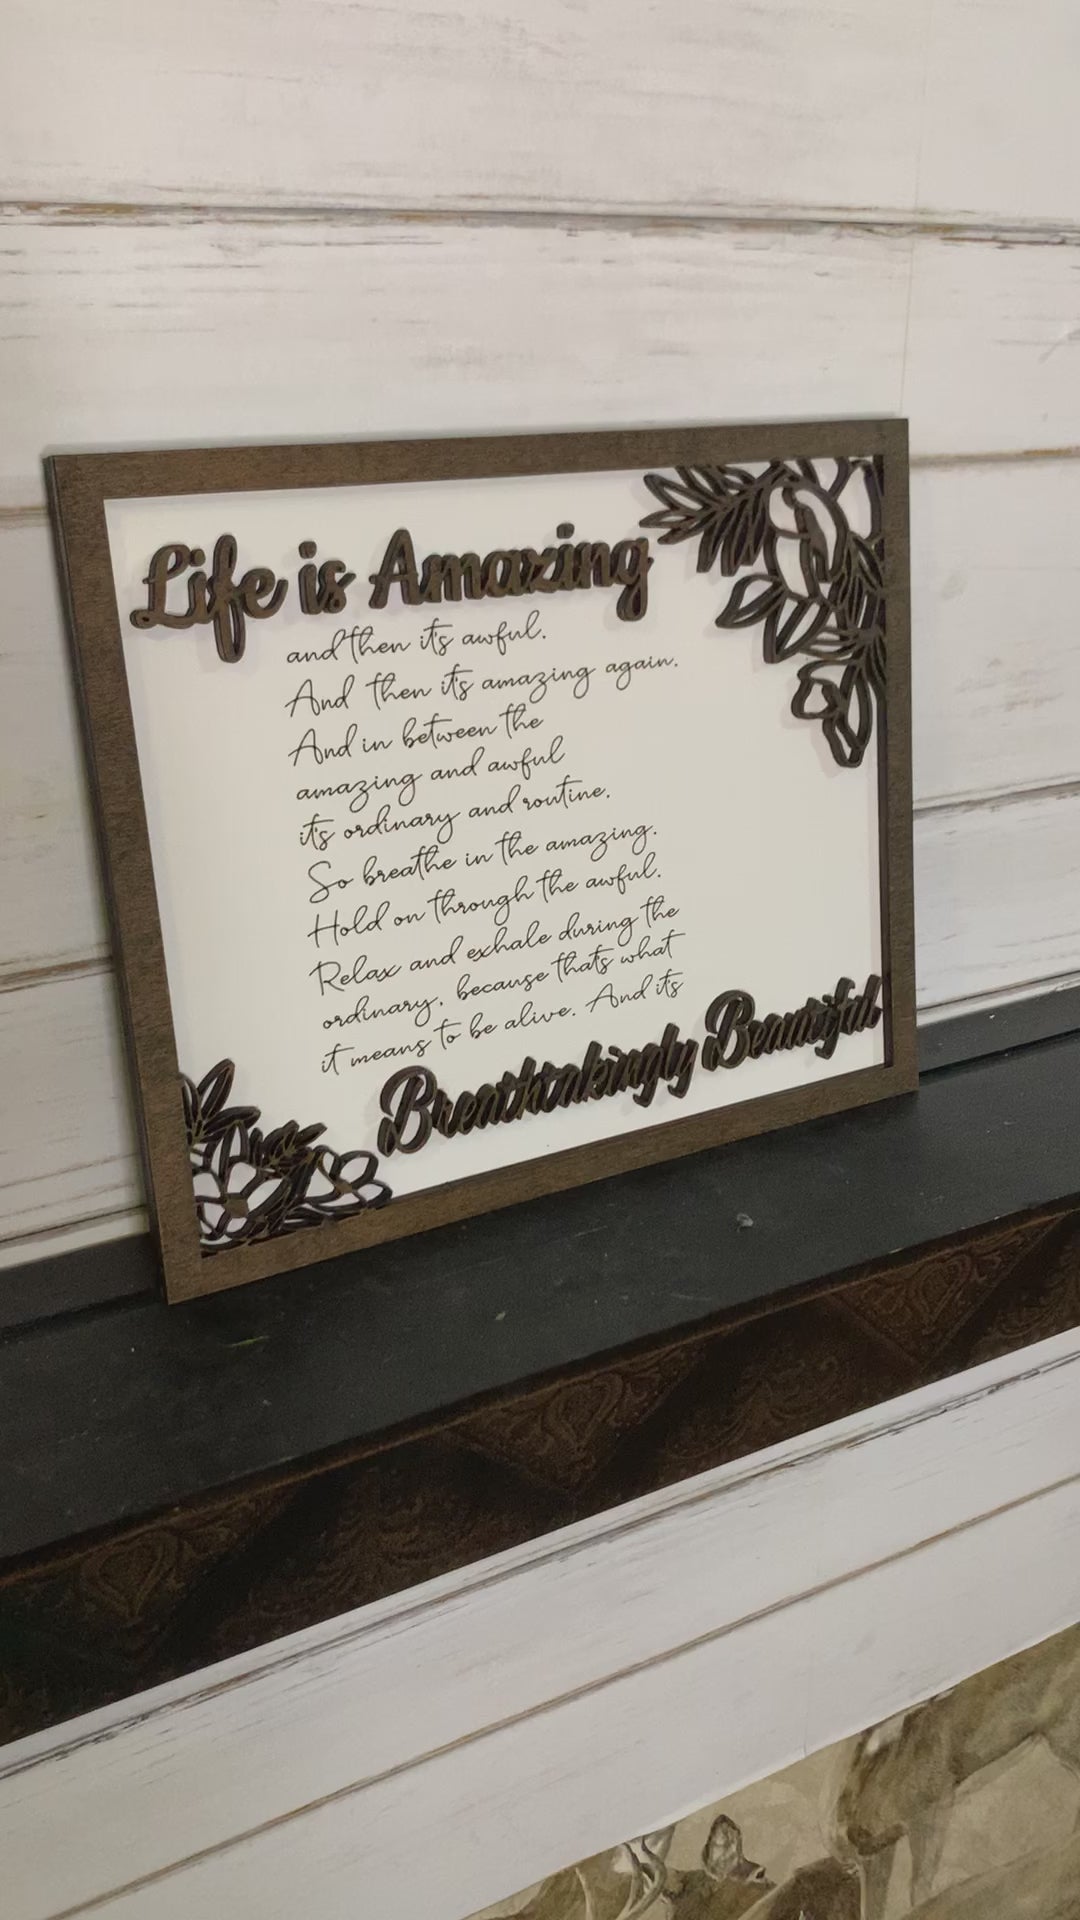 Life is Amazing
and then it's awful.
And then it's amazing again.
And in between the
amazing and awful
it's ordinary and routine.
So breathe in the amazing.
Hold on through the awful.
Relax and exhale during the
ordinary. because that's what
it means to be alive. And it's
Breathtakingly Beautiful